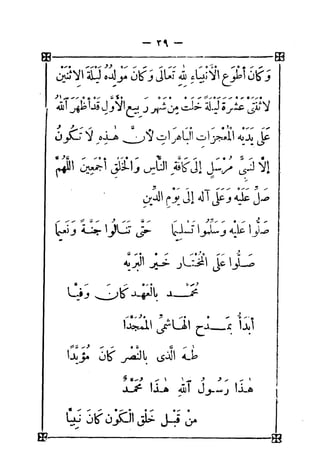 — ٣٩ —
وَكَانَ أَطْوَعَ الأَنْبِيَاءِ لِلهِ تَعَالَى وَكَانَ مَوْلِدُهُ لَيْلَةَ الاثْنَيْنِ
لاثْنَتَيْ عَشْرَةَ لَيْلَةً خَلَتْ مِنْ شَهْرِ رَبِيعِ الأَوَّلِ قَدْ أَظْهَرَ اللهُ
عَلَى يَدَيْهِ الْمُعْجِزَاتِ الْبَاهِرَاتِ لأَنَّ هَذِهِ لاَ تَكُونُ
إِلاَّ لِنَبِيٍّ مُرْسَلٍ إِلَى كَافَّةِ النَّاسِ وَالْخَلْقِ أَجْمَعِينَ اللَّهُمَّ
صَلِّ عَلَيْهِ وَعَلَى آلِهِ إِلَى يَوْمِ الدِّينِ
صَلُّوا عَلَيْهِ وَسَلِّمُوا تَسْلِيمًا حَتَّى تَنَالُوا جَنَّةً وَنَعِيمًا
صَلُّوا عَلَى الْمُخْتَارِ خَيْرِ الْبَرِيَّه
مُحَمَّد بِالْعَهْدِ كَانَ وَفِيًّا
أَبَدًا بِمَدْحِ الْهَاشِمِيِّ الْمُمَجَّدَا
طه الَّذِى بِالنَّصْرِ كَانَ مُؤَيَّدًا
هَذَا رَسُولُ اللهِ هَذَا مُحَمَّدٌ
مِنْ قَبْلِ خَلْقِ الْكَوْنِ كَانَ نَبِيًّا